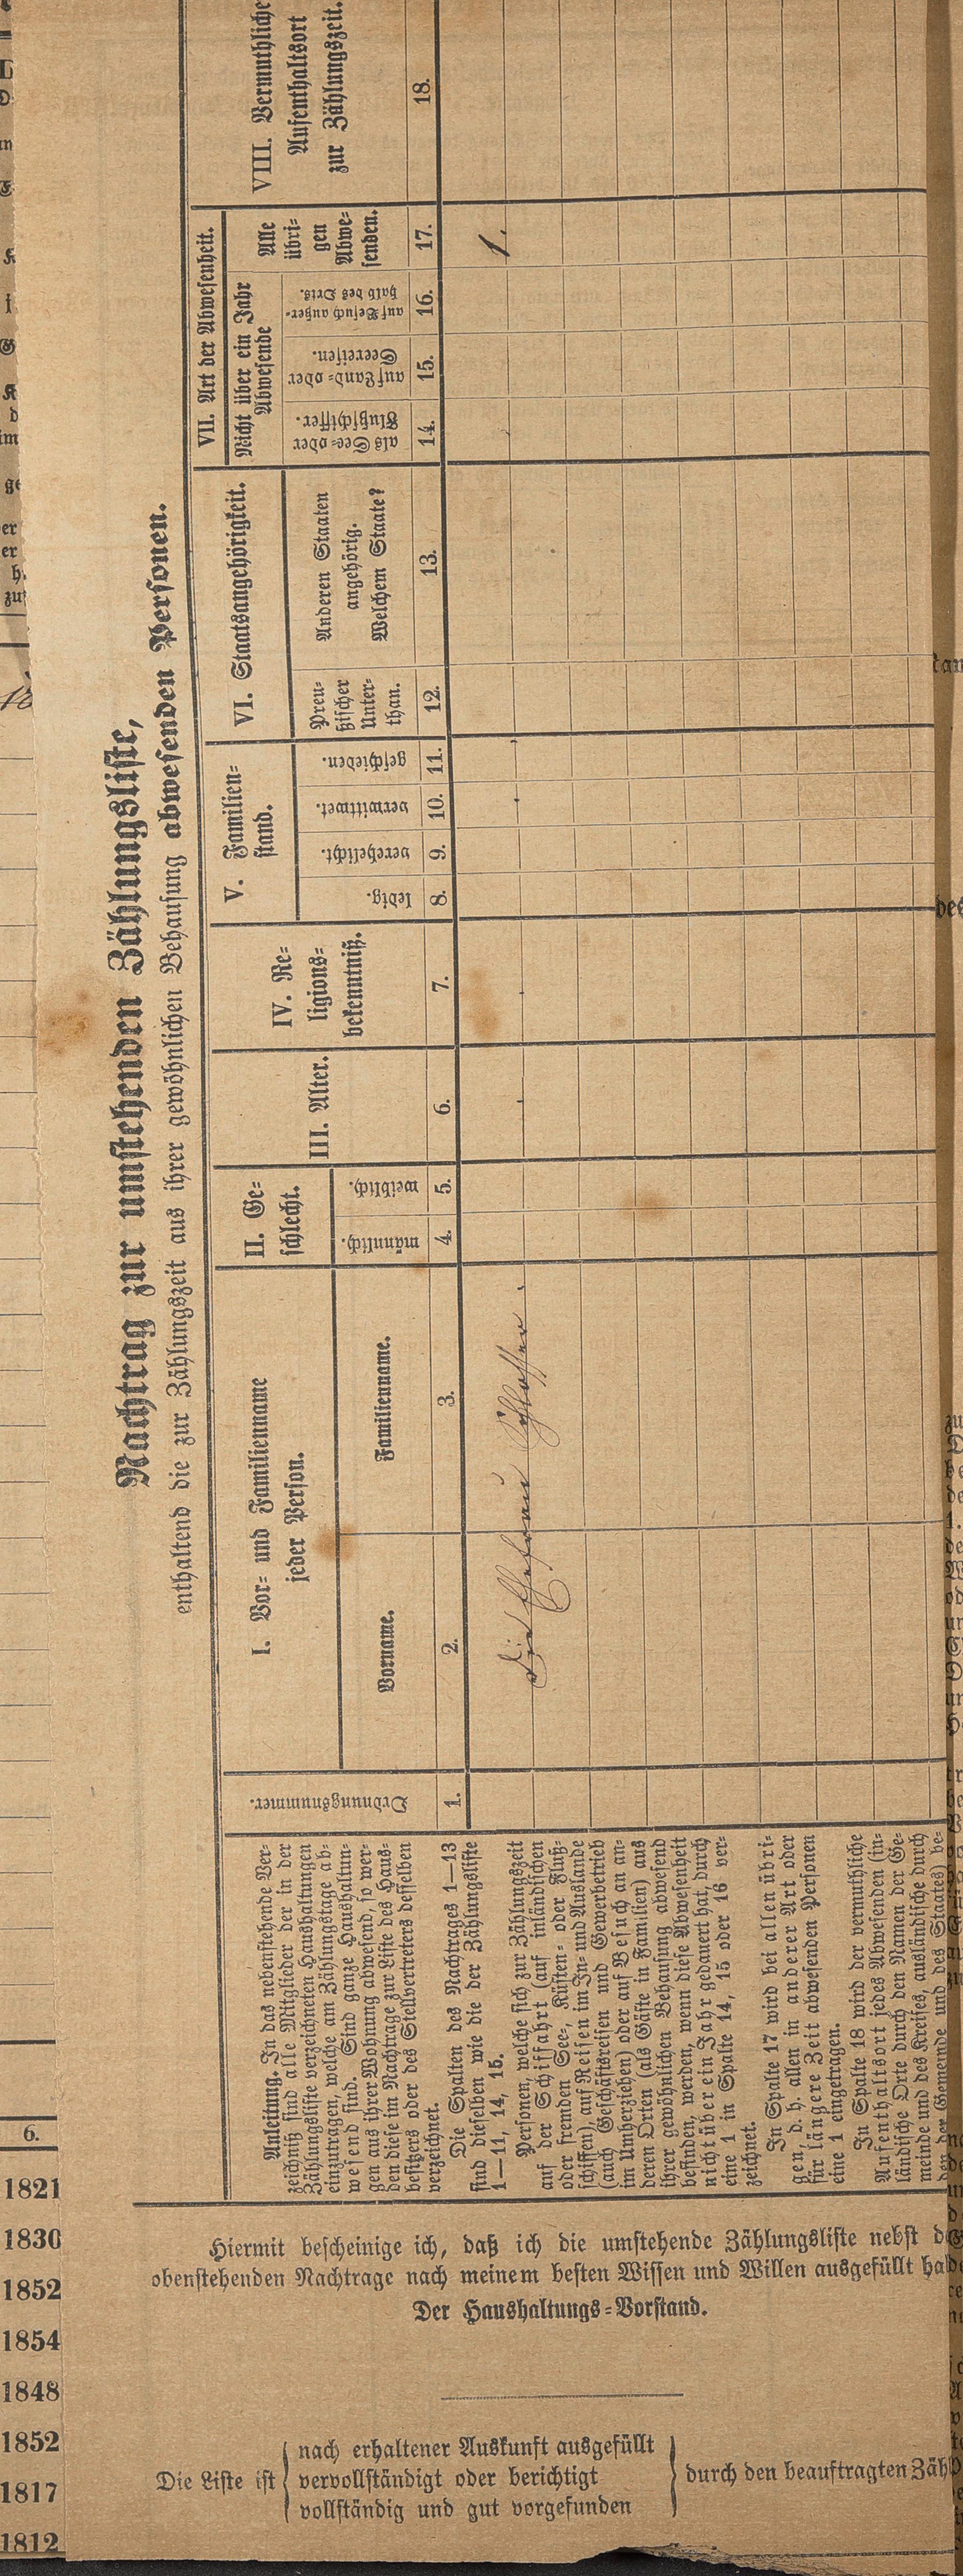 Nachtrag zur umstehenden Zählungsliste,
enthaltend die zur Zählungszeit aus ihrer gewöhnlichen Behausung abwesenden Personen.
Anleitung. In das nebenstehende Ver-
zeichniß sind alle Mitglieder der in der
Zählungsliste verzeichneten Haushaltungen
einzutragen, welche am Zählungstage ab-
wesend sind. Sind ganze Haushaltun-
gen aus ihrer Wohnung abwesend, so wer-
den diese im Nachtrage zur Liste des Haus-
besitzers oder des Stellvertreters desselben
verzeichnet.
Die Spalten des Nachtrages 1—13
sind dieselben wie die der Zählungsliste
1—11, 14, 15.
Personen, welche sich zur Zählungszeit
auf der Schiffahrt (auf inländischen
oder fremden See-, Küsten- oder Fluß-
schiffen), auf Reisen im In- und Auslande
(auch Geschäftsreisen und Gewerbetrieb
im Umherziehen) oder auf Besuch an an-
deren Orten (als Gäste in Familien) aus
ihrer gewöhnlichen Behausung abwesend
befinden, werden, wenn diese Abwesenheit
nicht über ein Jahr gedauert hat, durch
eine 1 in Spalte 14, 15 oder 16 ver-
zeichnet.
In Spalte 17 wird bei allen übri-
gen, d. h. allen in anderer Art oder
für längere Zeit abwesenden Personen
eine 1 eingetragen.
In Spalte 18 wird der vermuthliche
Aufenthaltsort jedes Abwesenden (in-
ländische Orte durch den Namen der Ge-
meinde und des Kreises, ausländische durch
den der Gemeinde und des Staates) be-
Ordnungsnummer.
1.
I. Vor- und Familienname
jeder Person.
Vorname.
2.
Familienname.
3.
II. Ge-
schlecht.
männlich.
4.
weiblich.
5.
III. Alter.
6.
IV. Re-
ligions-
bekenntniß.
7.
V. Familien-
stand.
ledig.
8.
verehelicht.
9.
verwittwet.
10.
geschieden.
11.
VI. Staatsangehörigkeit.
Preu-
ßischer
Unter-
than.
12.
Anderen Staaten
angehörig.
Welchem Staate?
13.
VII. Art der Abwesenheit.
Nicht über ein Jahr
Abwesende
als See- oder
Flußschiffer.
14.
auf Land- oder
Seereisen.
15.
auf Besuch außer-
halb des Orts.
16.
Alle
übri-
gen
Abwe-
senden.
17.
VIII. Vermuthliche
Aufenthaltsort
zur Zählungszeit.
18.
die Ehefrau Schlosser. 1.
Hiermit bescheinige ich, daß ich die umstehende Zählungsliste nebst
obenstehenden Nachtrage nach meinem besten Wissen und Willen ausgefüllt
Der Haushaltungs-Vorstand.
Die Liste ist
nach erhaltener Auskunft ausgefüllt
vervollständigt oder berichtigt
vollständig und gut vorgefunden
durch den beauftragten Zäh
6.
1821
1830
1852
1854
1848
1852
1817
1812